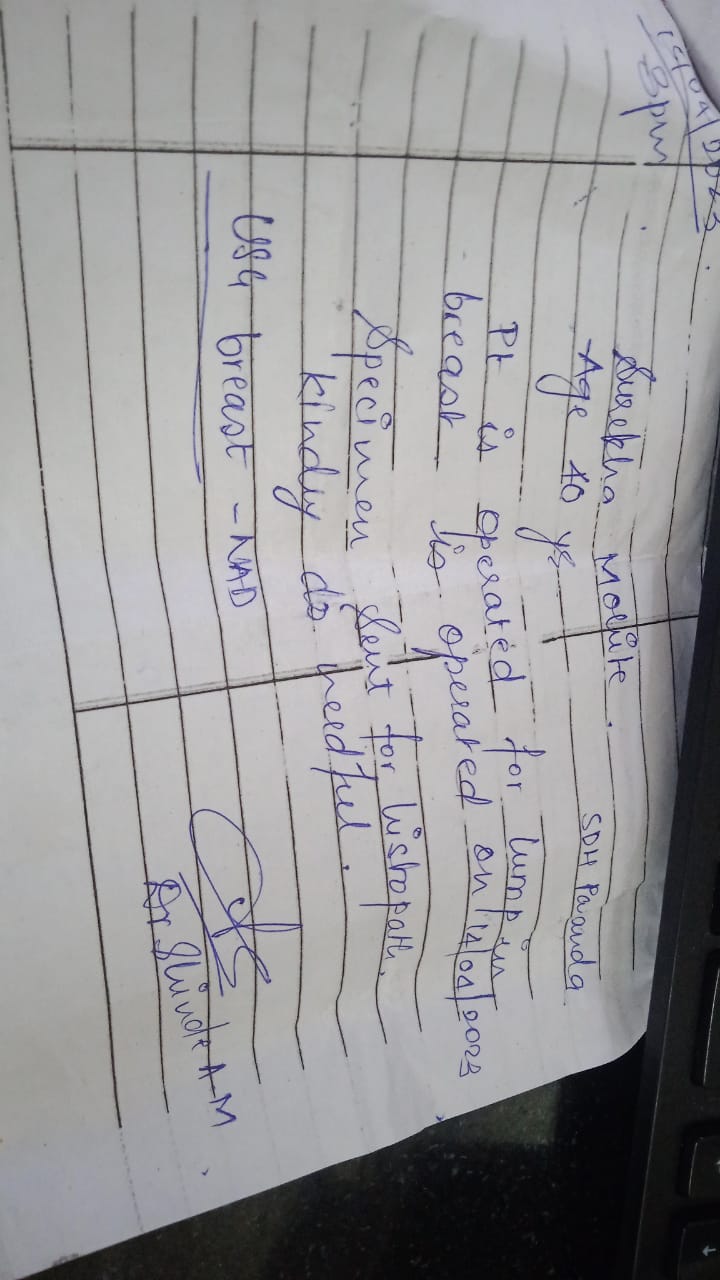 8pm
Surekha Mohite.
Age 40 ys
SDH Paranda
Pt is operated for lump in
breast is operated on 14/04/2023
Specimen sent for histopath.
kindly do needful.
USG breast - NAD
Dr Shinde A-M